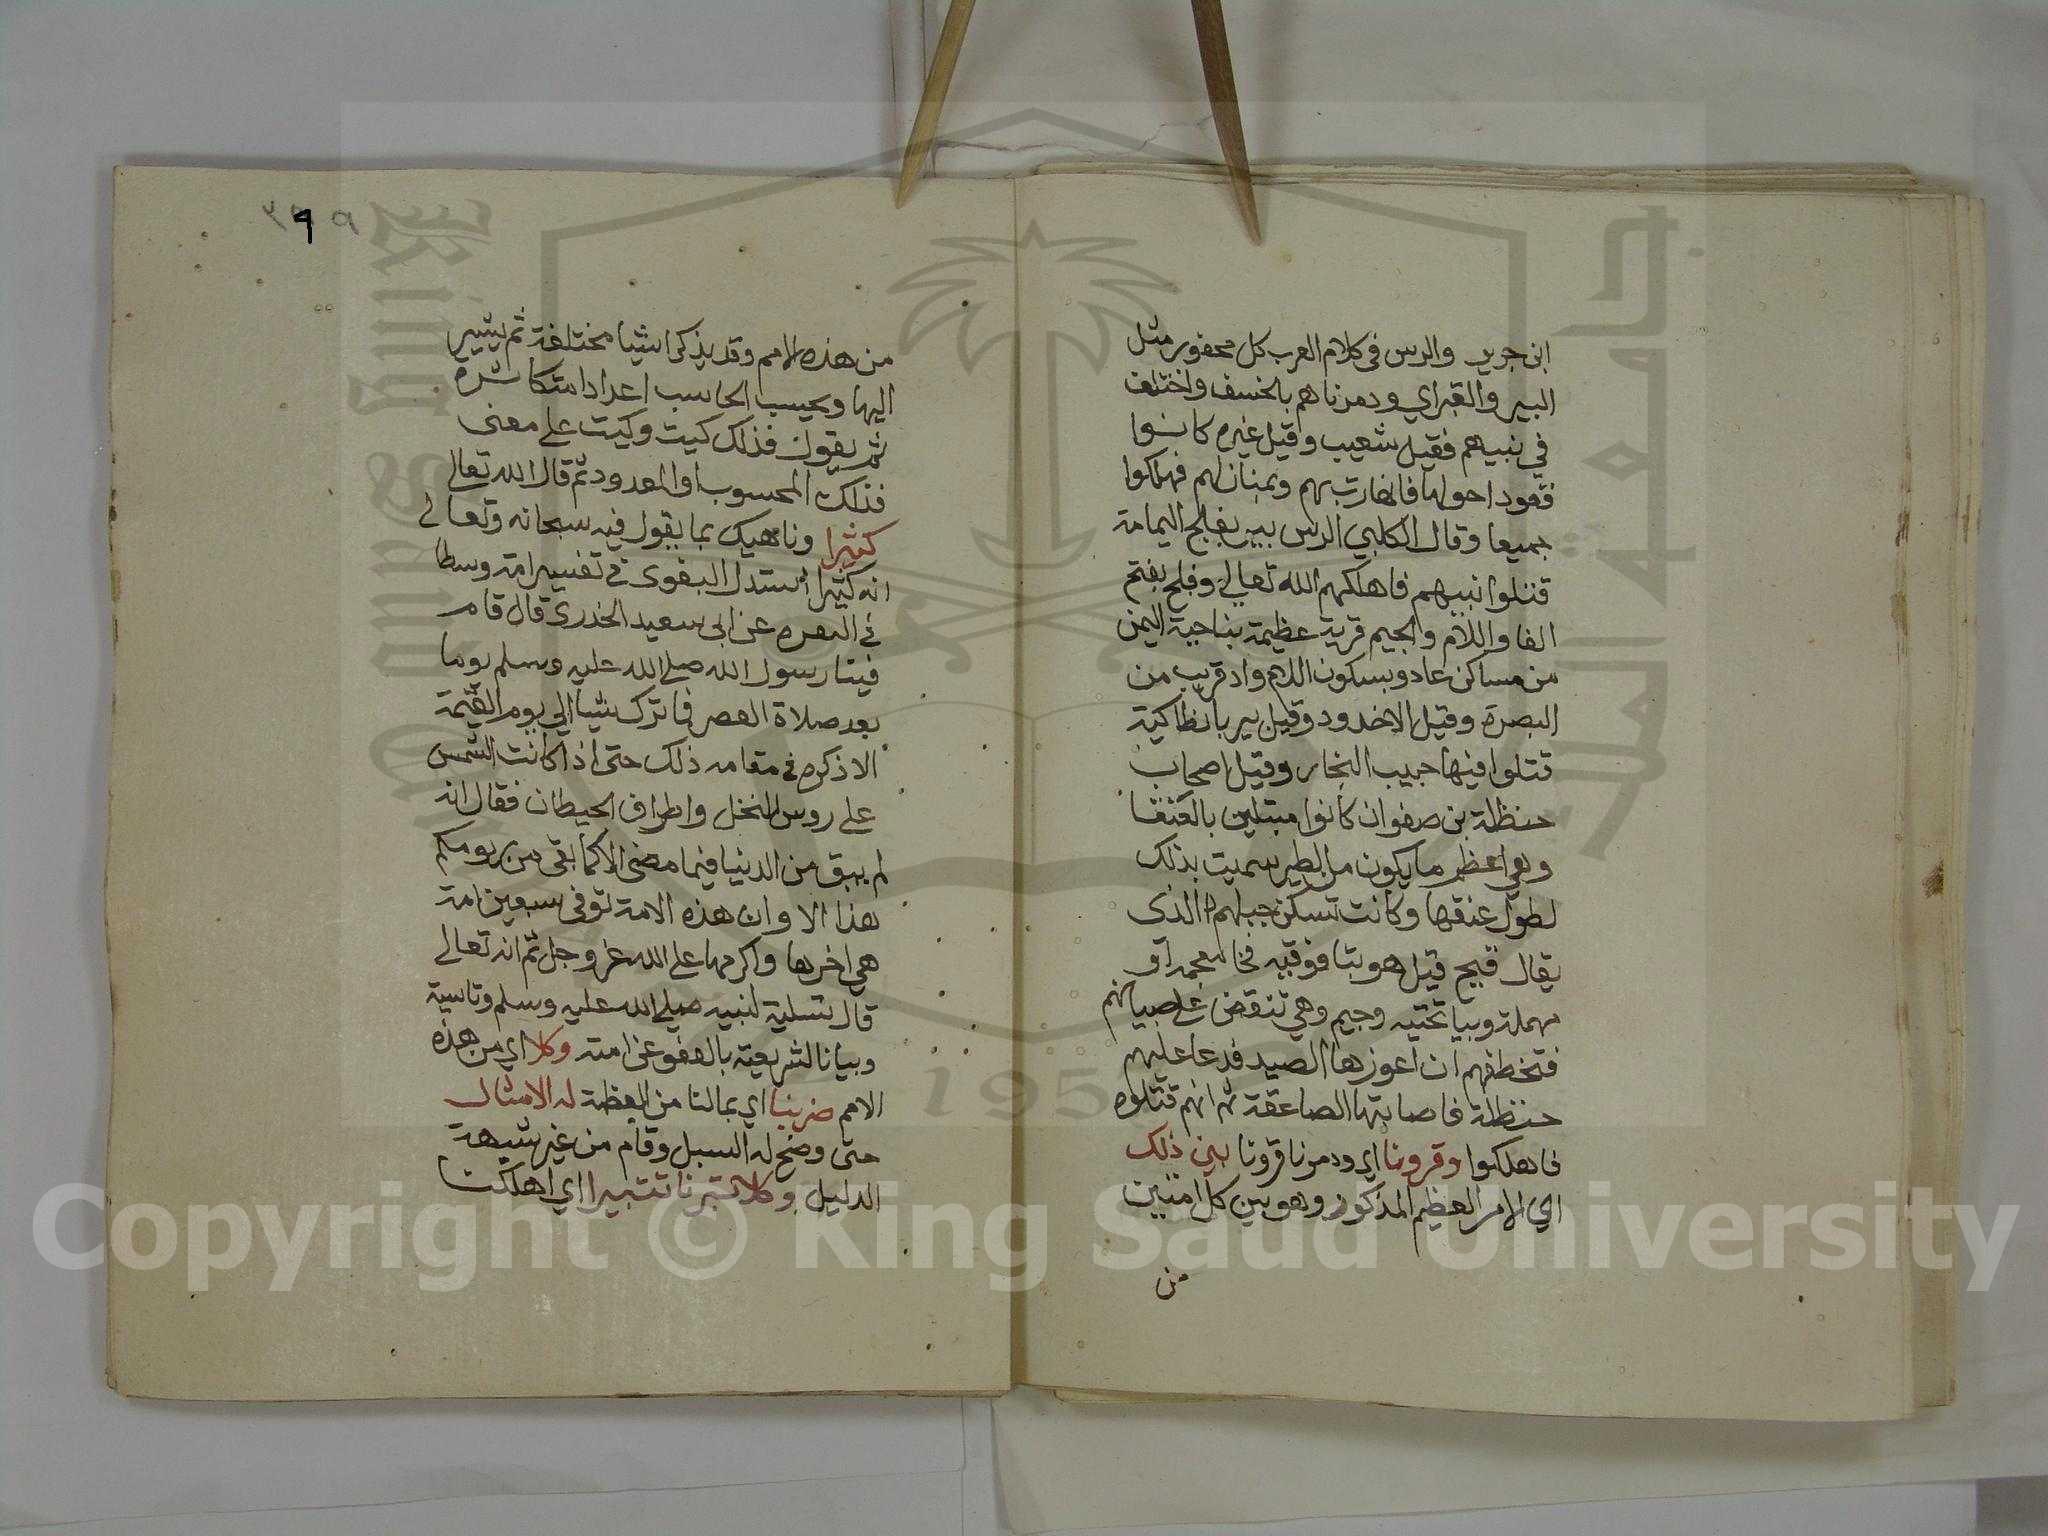 ابن جرير والرس في كلام العرب كل محفور مثل
البير والقبر اي ودمرناهم بالخسف واختلف
في نبيهم فقيل شعيب وقيل غيره كانوا
قعودا حولها فانهارت بهم وبمنازلهم فهلكوا
جميعا وقال الكلبي الرس بير بفلج اليمامة
قتلوا نبيهم فاهلكهم الله تعالي وفلج بفتح
الفا واللام والجيم قرية عظيمة بناحية اليمن
من مساكن عاد وبسكون اللام واد قريب من
البصرة وقيل الاخدود وقيل بير بانطاكية
قتلوا فيها حبيب النجار وقيل اصحاب
حنظلة بن صفوان كانوا مبتلين بالعنقا
وهي اعظم ما يكون من الطير سميت بذلك
لطول عنقها وكانت تسكن جبلهم الذي
يقال فتح قيل هو بتا فوقيه فخا معجمة او
مهملة وبيا تحتيه وجيم وهي تنقض على صبيانهم
فتخطفهم ان اعوزها الصيد فدعا عليهم
حنظلة فاصابتها الصاعقة ثم انهم قتلوه
فاهلكوا وقرونا اي ودمرنا قرونا بين ذلك
اي الامر العظيم المذكور وهو بين كل امتين
من
٩
من هذه الامم وقد يذكر اشيا مختلفة ثم يشير
اليها ويحسب الحاسب اعدادا متكاثرة
ثم يقول فذلك كيت وكيت على معنى
فذلك المحسوب او المعدود ثم قال الله تعالي
كثيرا وناهيك بما يقول فيه سبحانه وتعالي
انه كثيرا استدل البغوي في تفسير امة وسطا
في البقرة عن ابي سعيد الخدري قال قام
فينا رسول الله صلي الله عليه وسلم يوما
بعد صلاة العصر فما ترك شيا الي يوم القيمة
الا ذكره في مقامه ذلك حتى اذا كانت الشمس
على روس النخل واطراف الحيطان فقال انه
لم يبق من الدنيا فيما مضى الا كما بقى من يومكم
هذا الا وان هذه الامة توفي سبعين امة
هي اخرها واكرمها على الله عز وجل ثم انه تعالى
قال تسلية لنبيه صلي الله عليه وسلم وتاسية
وبيانا لشريعته بالعفو عن امته وكلا اي من هذه
الامم ضربنا اي بمالنا من العظمة له الامثال
حتى وضح له السبيل وقام من غير شبهة
الدليل وكلا تبرنا تتبيرا اي اهلكنا